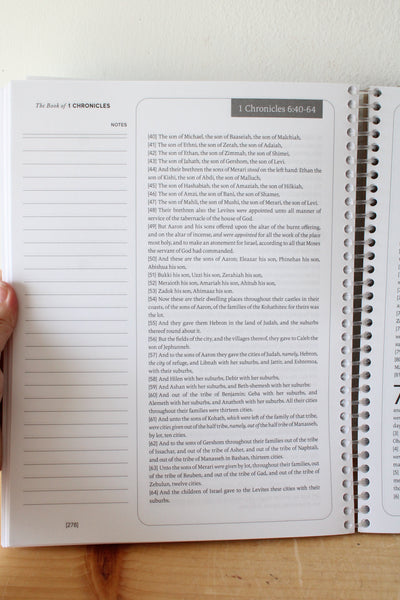 The Book of 1 CHRONICLES
NOTES
1 Chronicles 6:40-64
[40] The son of Michael, the son of Baaseiah, the son of Malchiah,
[41] The son of Ethni, the son of Zerah, the son of Adaiah,
[42] The son of Ethan, the son of Zimmah, the son of Shimei,
[43] The son of Jahath, the son of Gershom, the son of Levi.
[44] And their brethren the sons of Merari stood on the left hand: Ethan the
son of Kishi, the son of Abdi, the son of Malluch,
[45] The son of Hashabiah, the son of Amaziah, the son of Hilkiah,
[46] The son of Amzi, the son of Bani, the son of Shamer,
[47] The son of Mahli, the son of Mushi, the son of Merari, the son of Levi.
[48] Their brethren also the Levites were appointed unto all manner of
service of the tabernacle of the house of God.
[49] But Aaron and his sons offered upon the altar of the burnt offering,
and on the altar of incense, and were appointed for all the work of the place
most holy, and to make an atonement for Israel, according to all that Moses
the servant of God had commanded.
[50] And these are the sons of Aaron; Eleazar his son, Phinehas his son,
Abishua his son,
[51] Bukki his son, Uzzi his son, Zerahiah his son,
[52] Meraioth his son, Amariah his son, Ahitub his son,
[53] Zadok his son, Ahimaaz his son.
[54] Now these are their dwelling places throughout their castles in their
coasts, of the sons of Aaron, of the families of the Kohathites: for theirs was
the lot.
[55] And they gave them Hebron in the land of Judah, and the suburbs
thereof round about it.
[56] But the fields of the city, and the villages thereof, they gave to Caleb the
son of Jephunneh.
[57] And to the sons of Aaron they gave the cities of Judah, namely, Hebron,
the city of refuge, and Libnah with her suburbs, and Jattir, and Eshtemoa,
with their suburbs,
[58] And Hilen with her suburbs, Debir with her suburbs,
[59] And Ashan with her suburbs, and Beth-shemesh with her suburbs:
[60] And out of the tribe of Benjamin; Geba with her suburbs, and
Alemeth with her suburbs, and Anathoth with her suburbs. All their cities
throughout their families were thirteen cities.
[61] And unto the sons of Kohath, which were left of the family of that tribe,
were cities given out of the half tribe, namely, out of the half tribe of Manasseh,
by lot, ten cities.
[62] And to the sons of Gershom throughout their families out of the tribe
of Issachar, and out of the tribe of Asher, and out of the tribe of Naphtali,
and out of the tribe of Manasseh in Bashan, thirteen cities.
[63] Unto the sons of Merari were given by lot, throughout their families, out
of the tribe of Reuben, and out of the tribe of Gad, and out of the tribe of
Zebulun, twelve cities.
[64] And the children of Israel gave to the Levites these cities with their
suburbs.
[278]